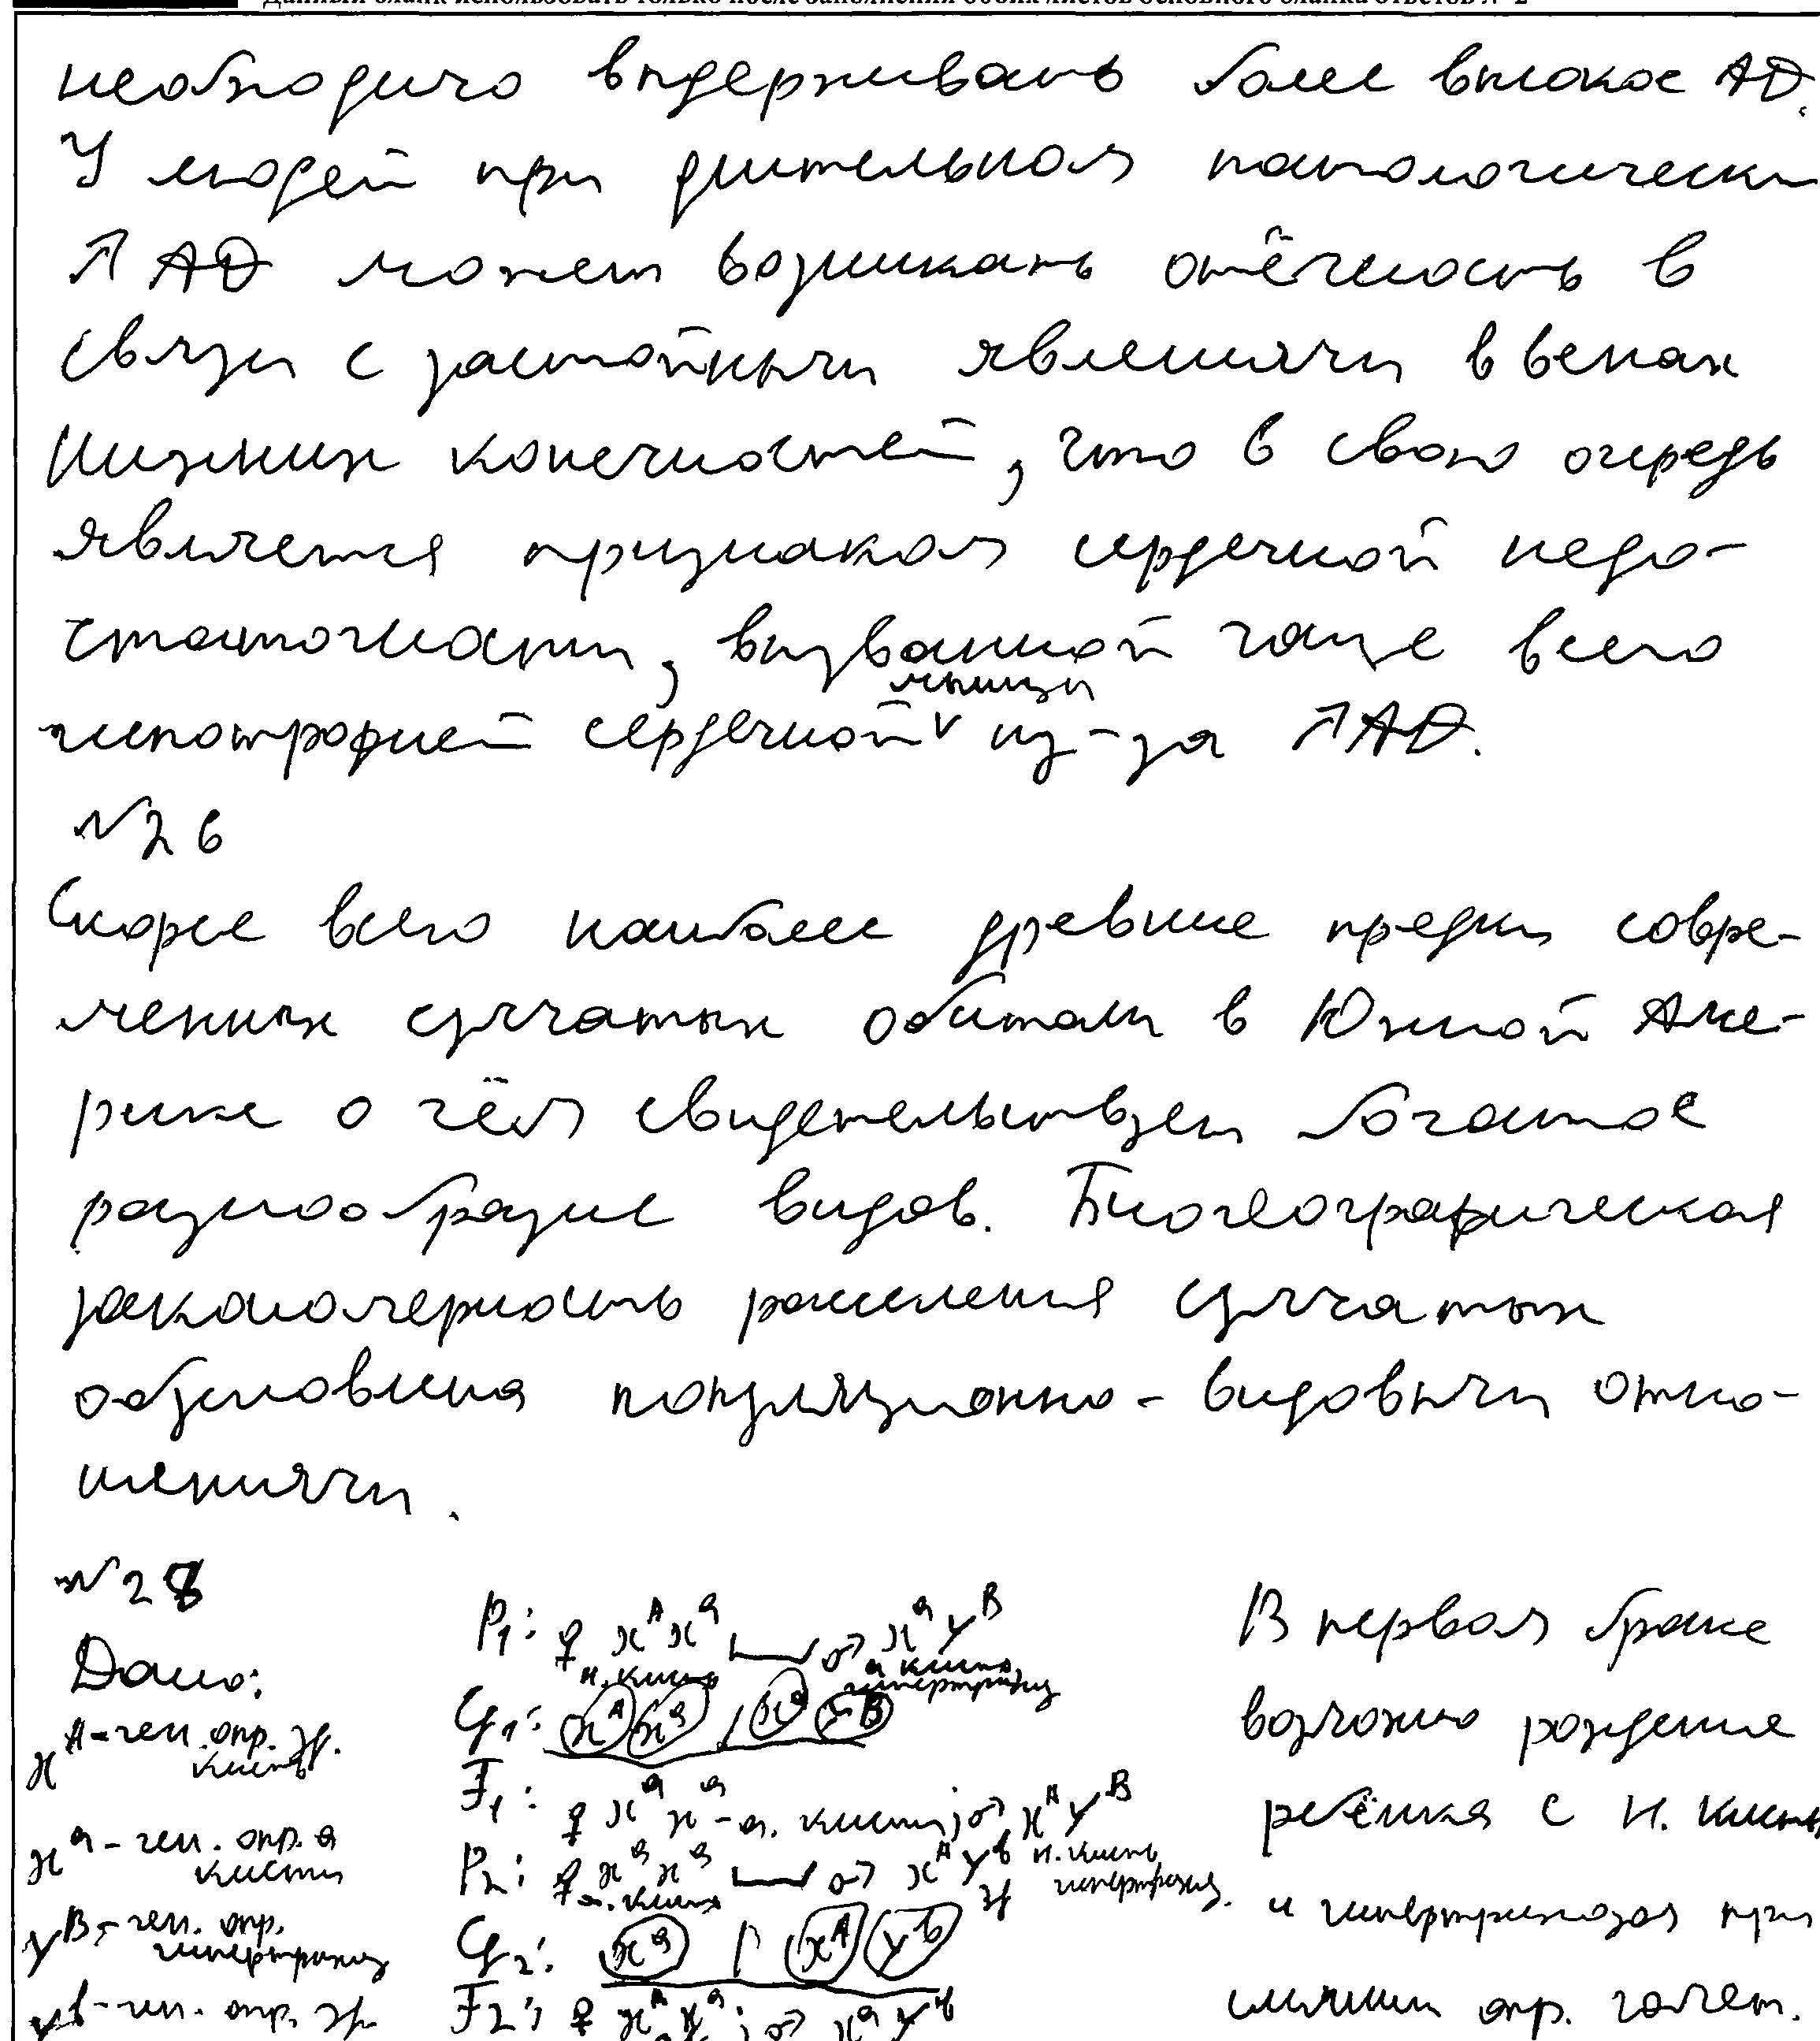 Данный бланк использовать только после заполнения обоих листов основного бланка ответов № 2
необходимо выдерживать более высокое АД.
У людей при длительном патологически
↑ АД может возникать отёчность в
связи с застойными явлениями в венах
нижних конечностей, что в свою очередь
является признаком сердечной недо-
статочности, вызванной чаще всего
гипотрофией сердечной мышцы из-за ↑АД.
№26
Скорее всего наиболее древние предки совре-
менных сумчатых обитали в Южной Аме-
рике о чём свидетельствует богатое
разнообразие видов. Биогеографическая
закономерность расселения сумчатых
обусловлена популяционно-видовыми отно-
шениями.
№28
Дано:
x^A - ген. опр. зд. кисть
x^a - ген. опр. a кисти
y^B - ген. опр. гипертрихоз
y^b - ген. опр. зд.
P1: ♀ x^A x^a ♂ x^a y^B
н. кисть a кисть гипертрихоз
G1: x^A x^a | x^a y^B
F1: ♀ x^a x^a - a. кисти; ♂ x^A y^B
н. кисть гипертрихоз.
P2: ♀ x^a x^a ♂ x^A y^b
a. кисть зд
G2: x^a | x^A y^b
F2: ♀ x^A x^a; ♂ x^a y^b
В первом браке
возможно рождение
ребёнка с н. кисть
и гипертрихозом при
слиянии опр. гамет.